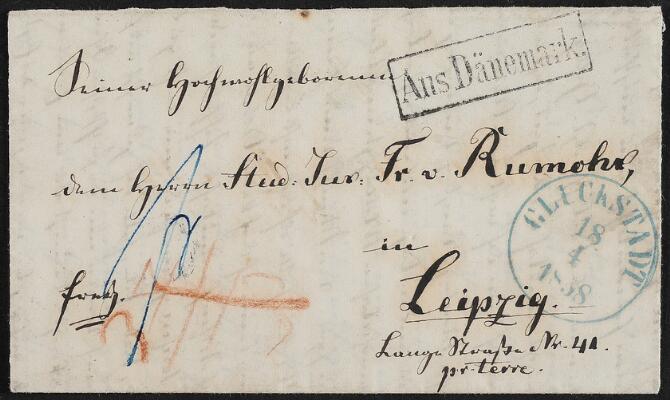 Aus Dänemark.
Seiner Hochwohlgeboren
dem Herrn Stud: Jur: Fr. v. Rumohr,
in
Leipzig.
Lange Straße Nr. 41
pr. terre.
GLÜCKSTADT
18
4
1858